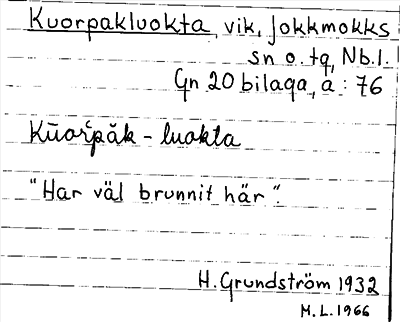 Kuorpakluokta, vik, Jokkmokks
sn o. tg, Nb.l.
Gn 20 bilaga, a : 76
Kŭorpăk - luokta
"Har väl brunnit här".
H. Grundström 1932
M.L. 1966